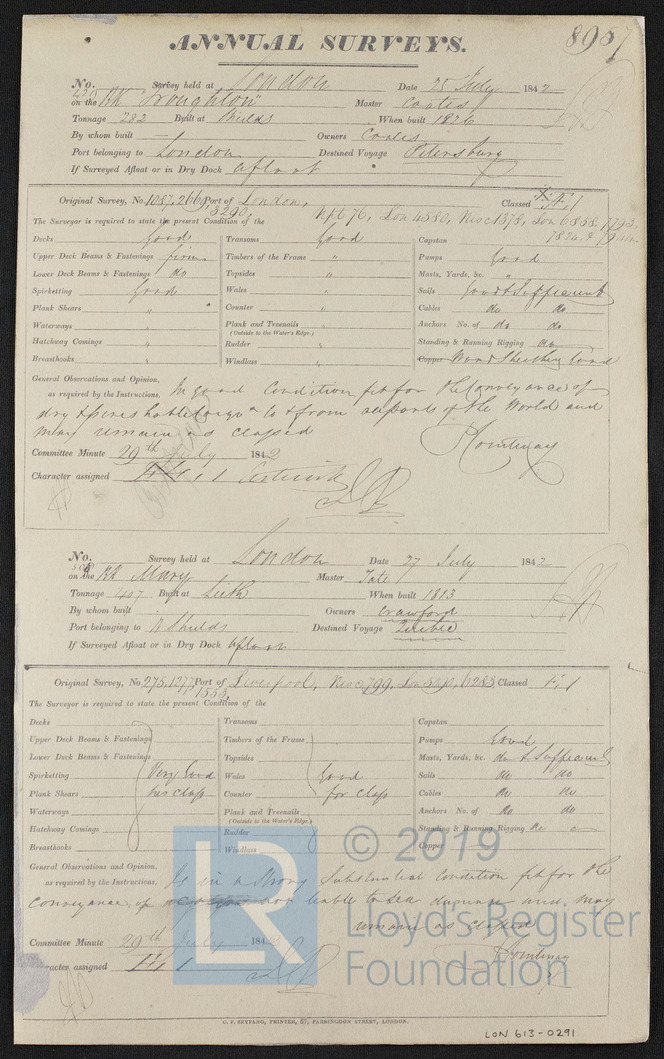 ANNUAL SURVEYS.
8907
No. 420 Survey held at London Date 25 July 1842
on the Bk "Troughton" Master Coates
Tonnage 282 Built at Shields When built 1826
By whom built — Owners Coates
Port belonging to London Destined Voyage Petersburg
If Surveyed Afloat or in Dry Dock afloat
Original Survey, No. 1087, 266 Port of London, Classed Æ 1
3290, Npt 76, Lon 4580, Nwc 1378, Lon 6858, 7793,
The Surveyor is required to state the present Condition of the
Decks Good Transoms Good Capstan
Upper Deck Beams & Fastenings firm Timbers of the Frame " Pumps Good
Lower Deck Beams & Fastenings do Topsides " Masts, Yards, &c. "
Spirketting Good Wales " Sails Good & Sufficient
Plank Shears " Counter " Cables do do
Waterways " Plank and Treenails " Anchors No. of do do
(Outside to the Water's Edge.)
Hatchway Comings " Rudder " Standing & Running Rigging do
Breasthooks " Windlass " Copper Wood Sheathing Good
General Observations and Opinion, In good Condition fit for the Conveyance of
as required by the Instructions,
dry & perishable Cargoes to & from all parts of the World and
may remain as classed
Courtenay
Committee Minute 29th July 1842
Character assigned Æ 1
No. 508 Survey held at London Date 27 July 1842
on the Bk Mary Master Tate
Tonnage 407 Built at Leith When built 1813
By whom built Owners Crawford
Port belonging to N Shields Destined Voyage Quebec
If Surveyed Afloat or in Dry Dock afloat
Original Survey, No 275, 1277 Port of Liverpool, Nwc 799, Lon 6283 Classed Æ 1
1553
The Surveyor is required to state the present Condition of the
Decks Transoms Capstan
Upper Deck Beams & Fastenings Timbers of the Frame Pumps Good
Lower Deck Beams & Fastenings Topsides Masts, Yards, &c. do & Sufficient
Spirketting Very Good Wales Good Sails do do
Plank Shears his class Counter for class Cables do do
Waterways Plank and Treenails Anchors No. of do do
(Outside to the Water's Edge.)
Hatchway Comings Rudder Standing & Running Rigging do
Breasthooks Windlass Copper
General Observations and Opinion, Is in a Strong Substantial Condition fit for the
as required by the Instructions,
conveyance of a cargo not liable to Sea damage and, may
remain as classed
Courtenay
Committee Minute 29th July 1842
Character assigned Æ 1
C. F. SEYFANG, PRINTER, 57, FARRINGDON STREET, LONDON.
LON 613-0291
LR
© 2019
Lloyd's Register
Foundation